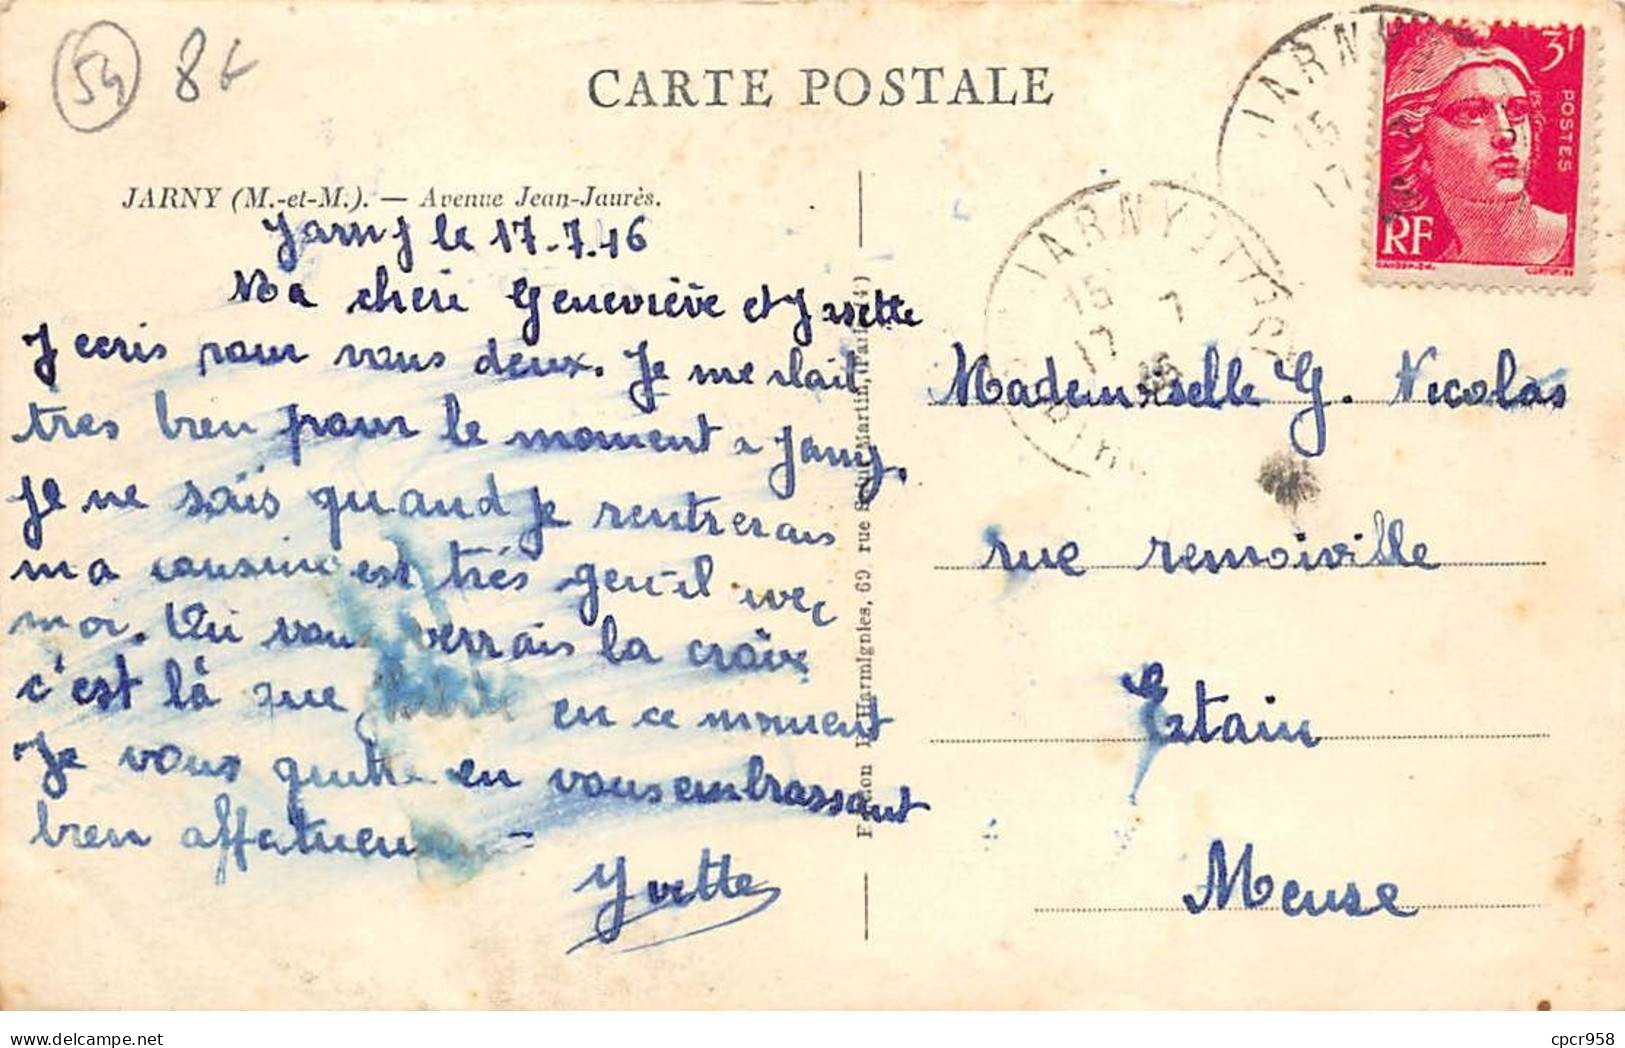 54 8f
CARTE POSTALE
JARNY (M.-et-M.). — Avenue Jean-Jaurès.
Jarny le 17-7.46
Ma cheri Geneviève et Josette
J ecris pour vous deux. Je me plait
tres bien pour le moment a Jarny.
Je ne sais quand je rentrerais
ma cousine est très gentil avec
moi. Ou vous verrais la croix
c'est là que en ce moment
Je vous quitte en vous embrassant
bien
Yvette
69 rue Martin, (Paris
3f
POSTES
RF
JARNY
15
17
JARNY
15
17 7
46
Mademoiselle G. Nicolas
rue remoiville
Etain
Meuse
cpcr958